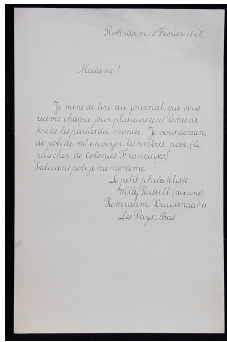 Rotterdam, 18 Février 1898.
Madame!
Je viens de lire au journal, que vous
recevez chaque jour plusieurs cent lettres de
toutes les parties du monde. Je vous deman,
de poli de m'envoyer les timbres, pour
de Colonies Françaises!
Saluant poli je me nomme
Le petit philatéliste
Russell
Rotterdam,
Les Pays-Bas